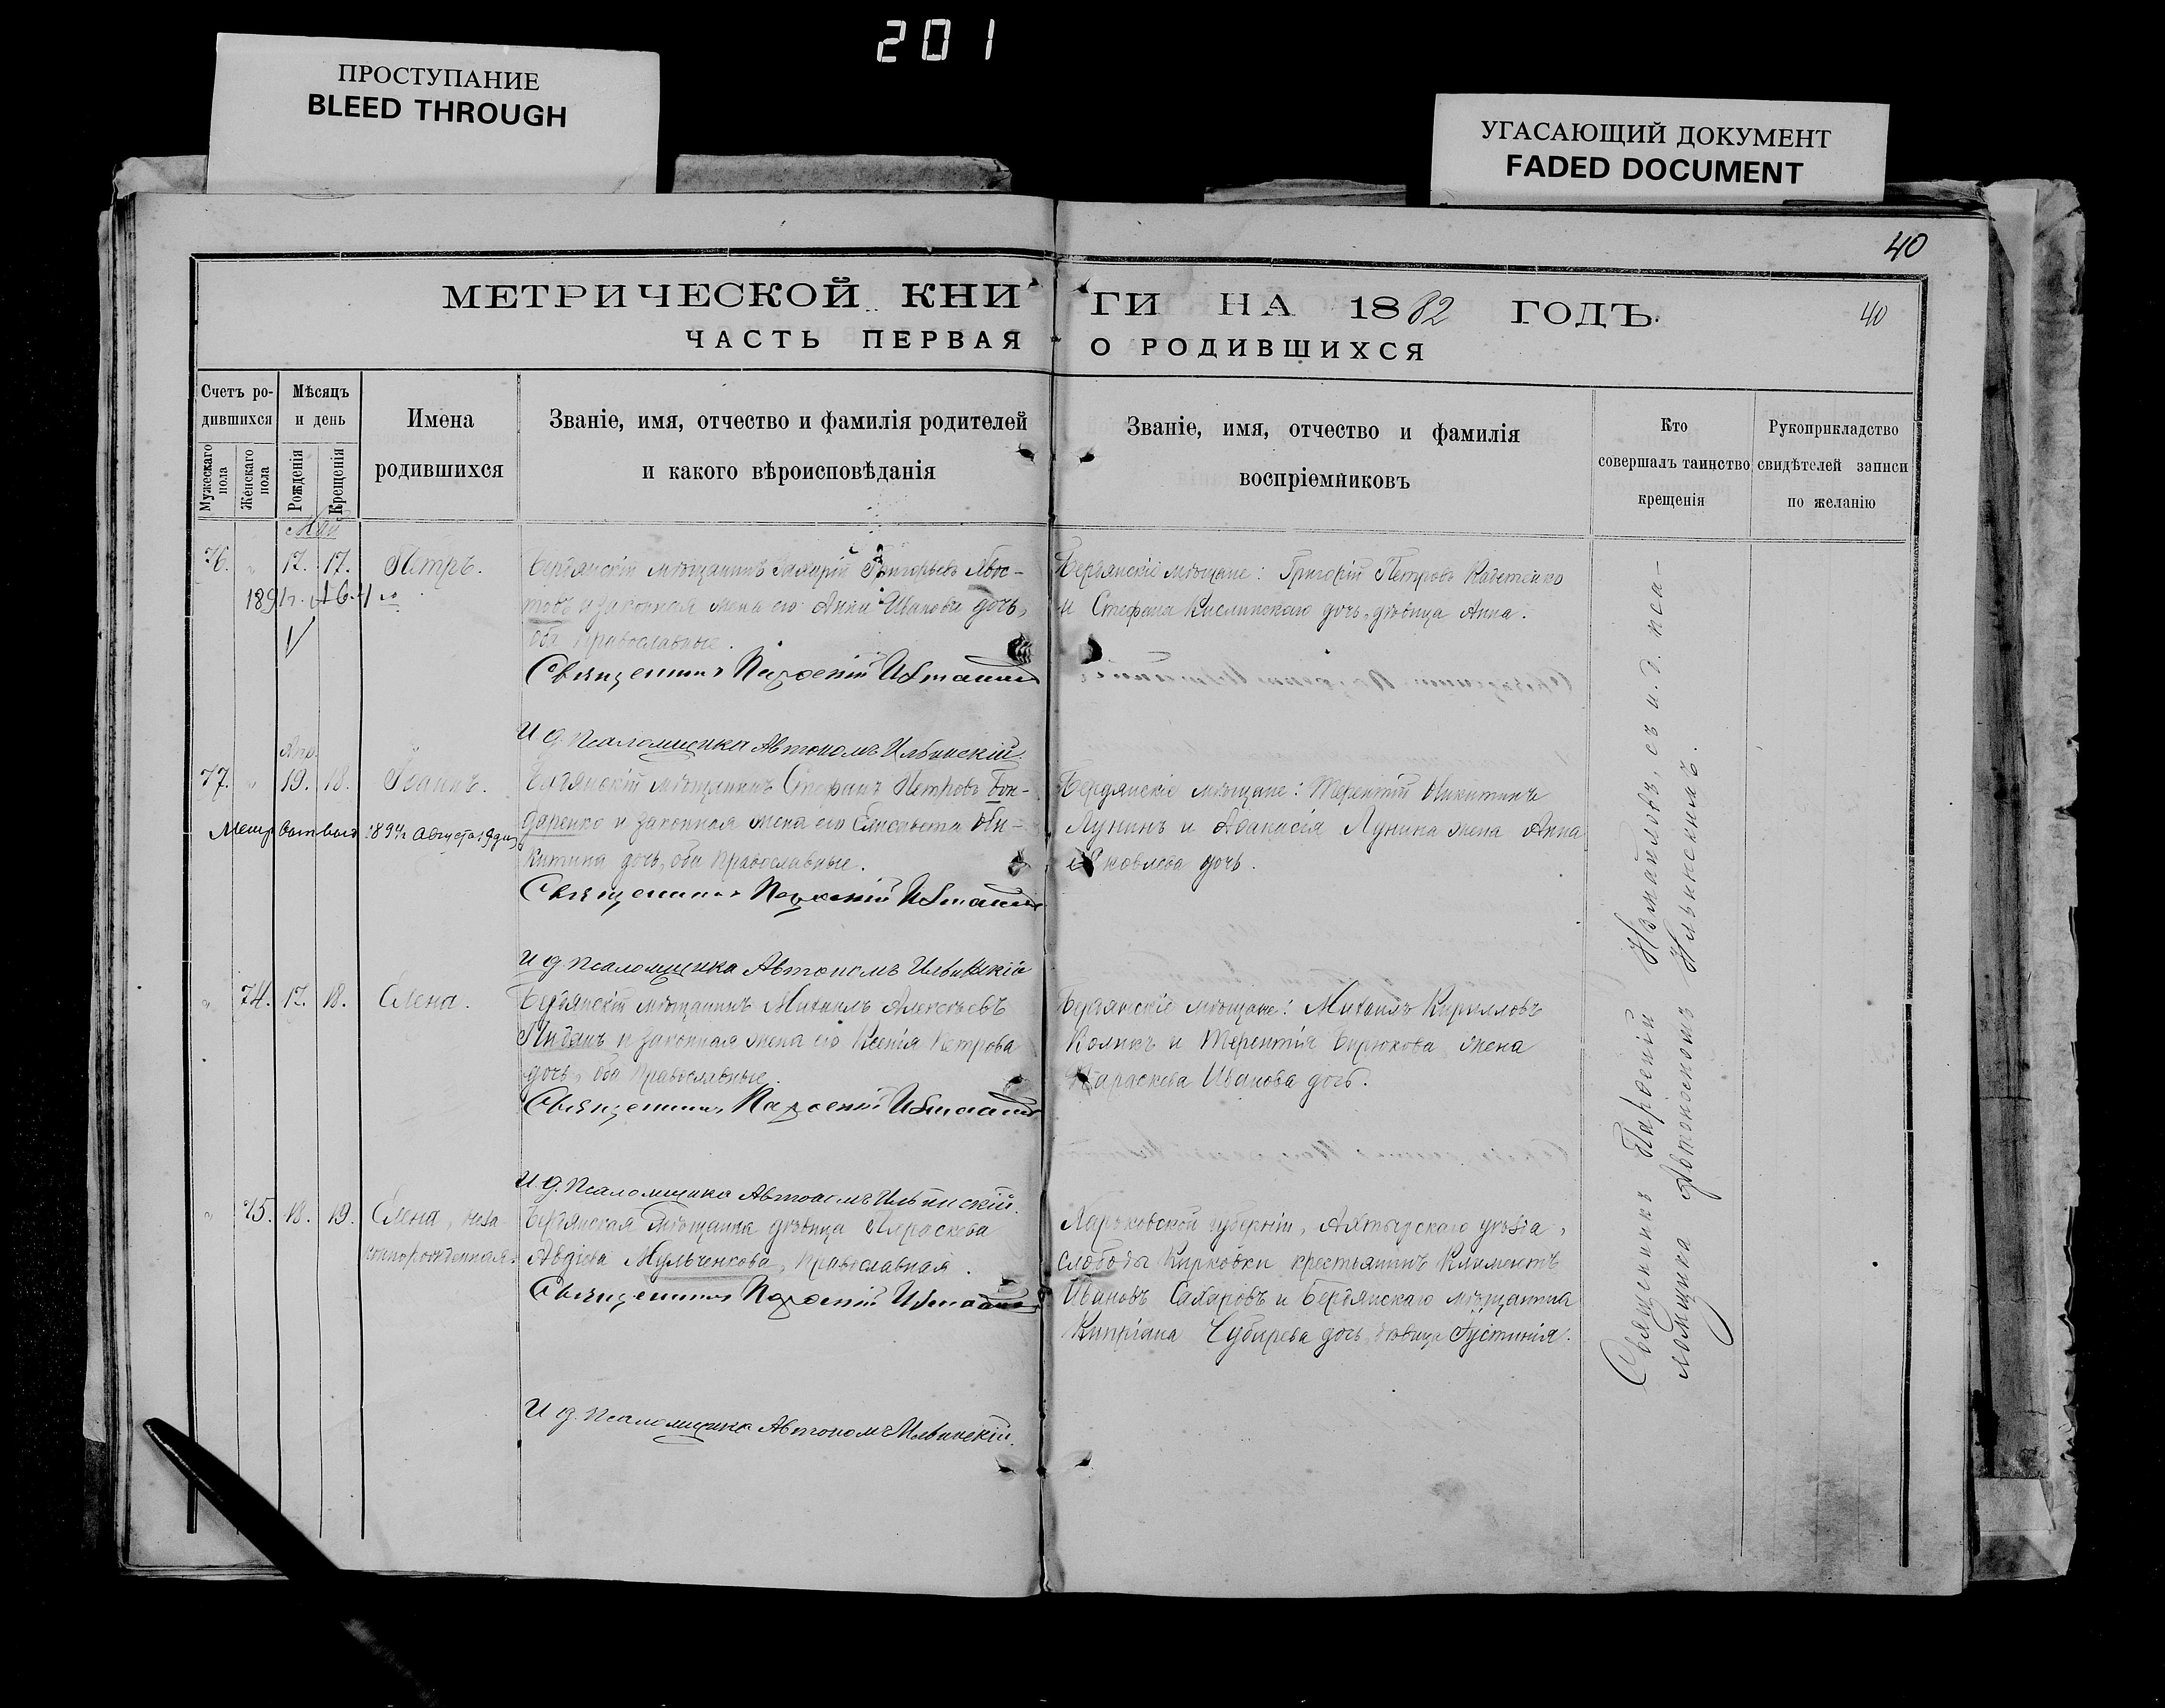 201
ПРОСТУПАНИЕ
BLEED THROUGH
УГАСАЮЩИЙ ДОКУМЕНТ
FADED DOCUMENT
40
МЕТРИЧЕСКОЙ КНИ ГИ НА 1882 ГОДЪ.
40
ЧАСТЬ ПЕРВАЯ О РОДИВШИХСЯ
Счетъ ро-
дившихся
Мужескаго пола
Женскаго пола
Мѣсяцъ
и день
Рожденія
Крещенія
Имена
родившихся
Званіе, имя, отчество и фамилія родителей
и какого вѣроисповѣданія
Званіе, имя, отчество и фамилія
воспріемниковъ
Кто
совершалъ таинство
крещенія
Рукоприкладство
свидѣтелей записи
по желанію
Май
76. " 17. 17. Петръ.
Бердянскій мѣщанинъ Григорьевъ
и законная жена его Анна Иванова дочь,
оба православные.
Священникъ Парѳеній Измаиловъ
И д. Псаломщика Автономъ Ильинскій.
Бердянскіе мѣщане: Григорій Петровъ
и Стефана дочь, дѣвица Анна.
77. " 19. 18. Іоаннъ.
Метр выд 1894 г Августа 19 дня
Бердянскій мѣщанинъ Стефанъ Петровъ Бон-
даренко и законная жена его Елисавета Ни-
китина дочь, оба православные.
Священникъ Парѳеній Измаиловъ
И д. Псаломщика Автономъ Ильинскій
Бердянскіе мѣщане: Терентій Никитинъ
Лунинъ и Аѳанасія Лунина жена Анна
Яковлева дочь.
" 74. 17. 18. Елена.
Бердянскій мѣщанинъ Михаилъ Алексѣевъ
и законная жена его Ксенія Петрова
дочь, оба православные.
Священникъ Парѳеній Измаиловъ
И д. Псаломщика Автономъ Ильинскій.
Бердянскіе мѣщане: Михаилъ Кирилловъ
и Терентія Бирюкова жена
Параскева Иванова дочь.
" 75. 18. 19. Елена, неза-
коннорожденная.
Бердянская мѣщанка дѣвица Параскева
Авдіева Мульченкова, православная.
Священникъ Парѳеній Измаиловъ
И д. Псаломщика Автономъ Ильинскій.
Харьковской губерніи, Ахтырскаго уѣзда,
слободы Кириковки крестьянинъ Климентъ
Ивановъ Сахаровъ и Бердянскаго мѣщанина
Кипріана дочь, дѣвица Іустинія.
Священникъ Парѳеній Измаиловъ, съ и. д. пса-
ломщика Автономомъ Ильинскимъ.